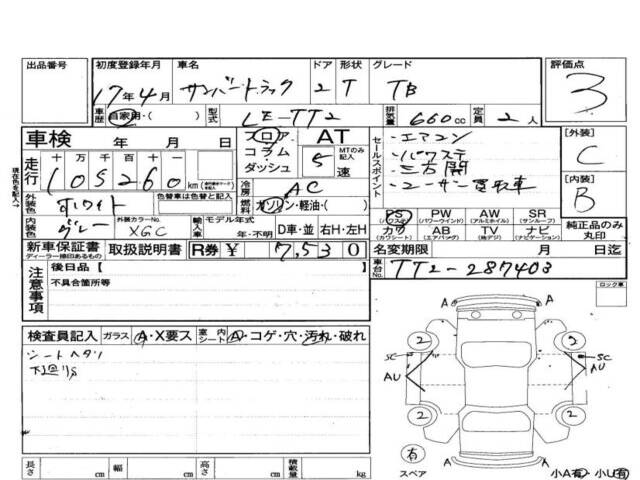 出品番号 初度登録年月 車名 ドア 形状 グレード 評価点
17年4月 サンバートラック 2 T TB 3
車歴 自家用・( ) 型式 LE-TT2 排気量 660cc 定員 2人
車検 年 月 日 フロア コラム ダッシュ AT MTのみ記入 5速
セールスポイント
・エアコン
・パワステ
・三方開
・ユーザー買取車
[外装] C
[内装] B
現在色を記入→
走行 十 万 千 百 十 一
105260 km
冷房 AC
外装色 ホワイト 色替車は色替と記入 燃料 ガソリン・軽油・( )
内装色 グレー 外装カラーNo. XGC 輸入車 モデル年式 年・不明 D車・並 右H・左H
PS (パワステ) PW (パワーウインド) AW (アルミホイル) SR (サンルーフ)
カワ (カワシート) AB (エアバッグ) TV (地デジ) ナビ (ナビゲーション)
純正品のみ丸印
新車保証書 ディーラー捺印あるもの 取扱説明書 R券 ¥ 7,530
名変期限 月 日迄
車台No. TT2-287403
注意事項
後日品【 】
不具合箇所等
ロック車
検査員記入 ガラス A・X要ス 室内シート A・コゲ・穴・汚れ・破れ
シートヘタリ
下廻リS
2 2
SC SC
AU AU
2 2
有
スペア
小A有 小U有
長さ cm 幅 cm 高さ cm 積載量 kg